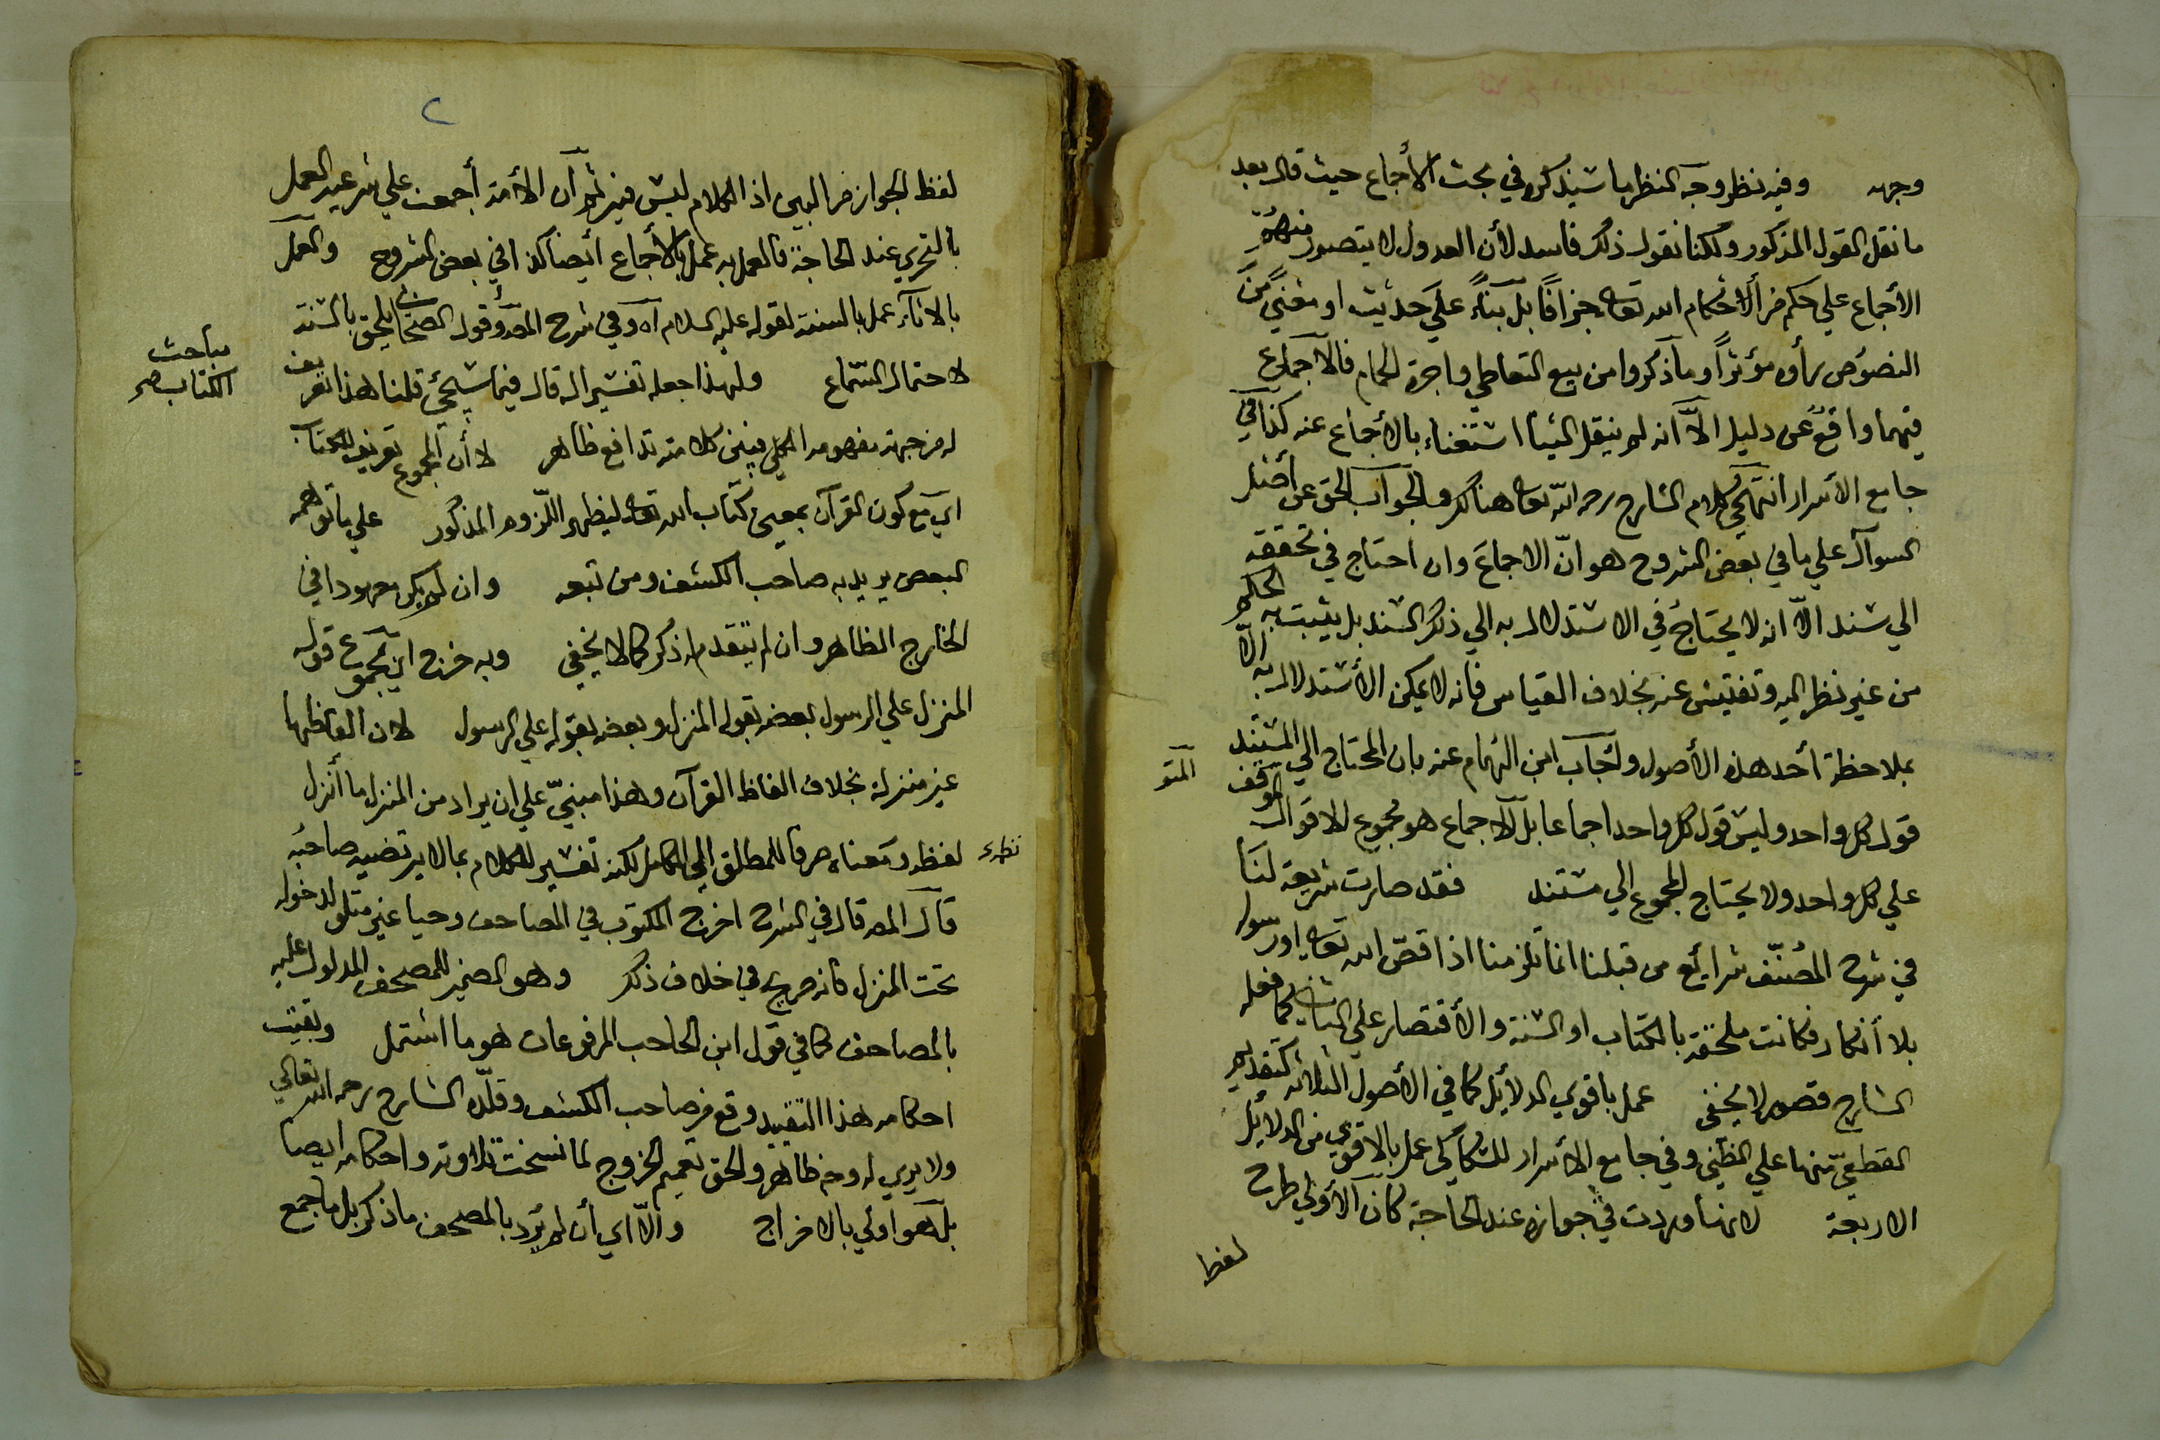 وجهه وفيه نظر وجه النظر ما سيذكره في بحث الأجماع حيث قال بعد
ما نقل القول المذكور ولكنا نقول ذلك فاسد لأن العدول لا يتصور منهم
الأجماع علي حكم من أحكام الله تعه جزافًا بل بناءً علي حديث او معني من
النصوص رأوه مؤثراً وما ذكروا من بيع التعاطي واجرة الحمام فالاجماع
فيهما واقع عن دليل الاّ انه لم ينقل الينا استغناء بالأجماع عنه كذا في
جامع الأسرار انتهي كلام الشارح رحمه الله تعه هنالك والجواب الحق عن أصل
السوآل علي ما في بعض الشروح هو انّ الاجماع وان احتاج في تحققه
الي سند الاّ انه لا يحتاج في الاستدلال به الي ذكر السند بل يثبت به الحكم
من غير نظر اليه وتفتيش عنه بخلاف القياس فانه لا يمكن الأستدلال به الاّ
بملاحظة أحد هذه الأصول وأجاب ابن الهمام عنه بان المحتاج الي المستند
قول كل واحد وليس قول كل واحد اجماعا بل الاجماع هو مجموع الاقوال المتوقف
المتو
علي كل واحد ولا يحتاج المجموع الي مستند فقد صارت شريعة لنا
في شرح المصنّف شرائع من قبلنا انما تلزمنا اذا قصّ الله تعه او رسوله
بلا أنكار فكانت ملحقة بالكتاب او السنة والأقتصار علي الثاني كما فعله
الشارح قصور لا يخفي عمل باقوي الدلائل كما في الأصول الثلاثة كتقديم
القطعيّ منها علي الظني وفي جامع الأسرار للكاكي عمل بالاقوي من الدلائل
الاربعة لانها وردت في جوازه عند الحاجة كان الأولي طرح
لفظ
٢
لفظ الجواز من البين اذ الكلام ليس فيه ثم ان الأمة أجمعت علي شرعية العمل
بالتحري عند الحاجة فالعمل به عمل بالأجماع أيضا كذا في بعض الشروح والعمل
بالآثار عمل بالسنة لقوله عليه السلام اه وفي شرح المص وقول الصحابي ملحق بالسنة
لاحتمال السماع ولهذا جعله تفسيرا له قال فيما سيجئ قلنا هذا تعريف
مباحث
الكتاب
له من جهة مفهومه الكلي فبين كلاميه تدافع ظاهر لا أن المجموع تعريف للكتاب
اي مع كون القرآن بمعني كتاب الله تعه ليظهر اللزوم المذكور علي ما توهمه
البعض يريد به صاحب الكشف ومن تبعه وان لم يكن معهودا في
الخارج الظاهر وان لم يتقدم له ذكر كما لا يخفي وبه خرج اي بمجموع قوله
المنزل علي الرسول بعضه بقوله المنزل وبعضه بقوله علي الرسول لان الفاظها
غير منزلة بخلاف الفاظ القرآن وهذا مبنيّ علي ان يراد من المنزل ما أنزل
لفظه ومعناه صرفا للمطلق الي الكامل لكنه تفسير للكلام بما لا يرتضيه صاحبه
قال المص قال في الشرح اخرج المكتوب في المصاحف وحيا غير متلو لدخوله
تحت المنزل فانه صريح في خلاف ذلك وهو الضمير للمصحف المدلول عليه
بالمصاحف كما في قول ابن الحاجب المرفوعات هو ما اشتمل وبقيت
احكامه هذا التقييد وقع من صاحب الكشف وقلّده الشارح رحمه الله تعالي
ولا يري له وجه ظاهر والحق تعميم الخروج لما نسخت تلاوته واحكامه ايضا
بل هو اولي بالاخراج والاّ اي أن لم يرد بالمصحف ما ذكر بل ما جمع